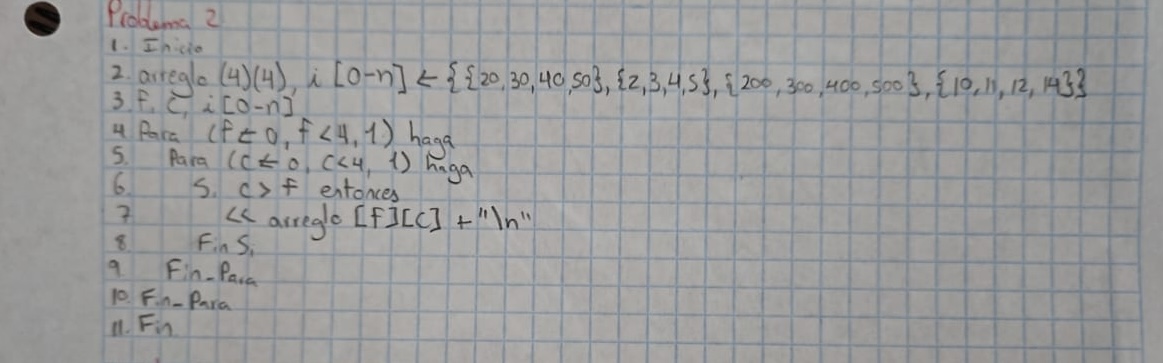 Problema 2
1. Inicio
2. arreglo (4)(4), i [0-n] ← {{20,30,40,50}, {2,3,4,5}, {200,300,400,500}, {10,11,12,14}}
3. F, C, i [0-n]
4 Para (f ← 0, f < 4, 1) haga
5. Para (c ← 0, c<4, 1) haga
6. Si c > f entonces
7 << arreglo [f][c] + "\n"
8 Fin Si
9 Fin-Para
10. Fin-Para
11. Fin